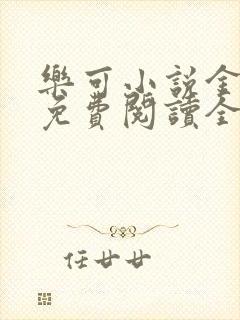 樂可小說全
免費閱讀全
任廿廿